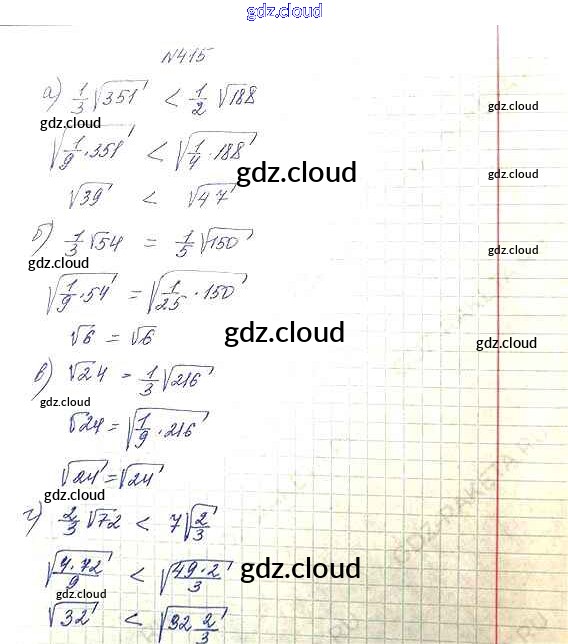 gdz.cloud
N415
а) 1/3 √351 < 1/2 √188
gdz.cloud
gdz.cloud
√(1/9 · 351) < √(1/4 · 188)
gdz.cloud
gdz.cloud
√39 < √47
б) 1/3 √54 = 1/5 √150
gdz.cloud
gdz.cloud
√(1/9 · 54) = √(1/25 · 150)
√6 = √6
gdz.cloud
gdz.cloud
в) √24 = 1/3 √216
gdz.cloud
√24 = √(1/9 · 216)
√24 = √24
gdz.cloud
г) 2/3 √72 < 7√(2/3)
√(4·72/9) < √(49·2/3)
gdz.cloud
gdz.cloud
√32 < √(32 2/3)